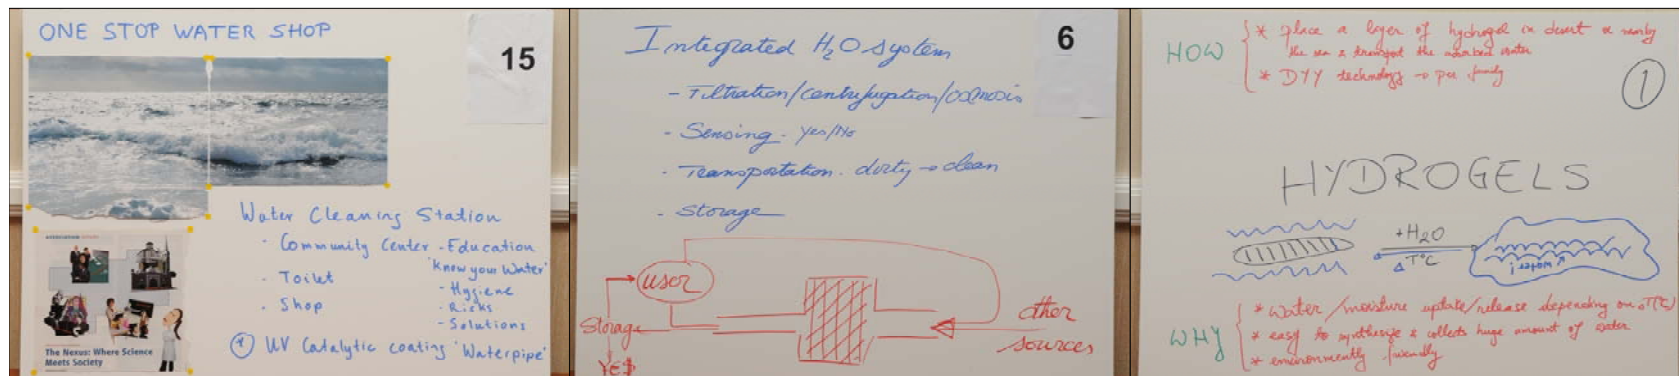 ONE STOP WATER SHOP
15
Water Cleaning Station
· Community Center
- Education
'Know your Water'
- Hygiene
- Risks
- Solutions
· Toilet
· Shop
The Nexus: Where Science
Meets Society
UV Catalytic coating 'Waterpipe'
6
Integrated H₂O system
- Filtration/centrifugation/osmosis
- Sensing - Yes/No
- Transportation. dirty → clean
- Storage
user
Storage
YES
other
sources
1
HOW
* place a layer of hydrogel in desert or nearby
the sea & transport the adsorbed water
* DYY technology → per family
HYDROGELS
+H₂O
Δ T°C
water
WHY
* Water/moisture update/release depending on T(°C)
* easy to synthesize & collects huge amount of water
* environmently friendly